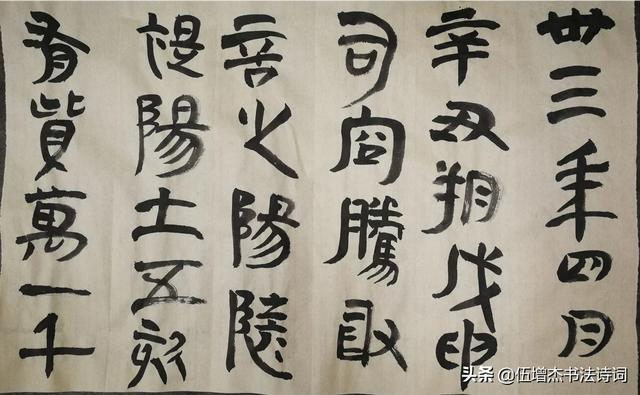 卅三年四月
辛丑朔戊申
司空騰敢
言之陽陵
褆陽士五欬
有貲萬一千
头条 @伍增杰书法诗词